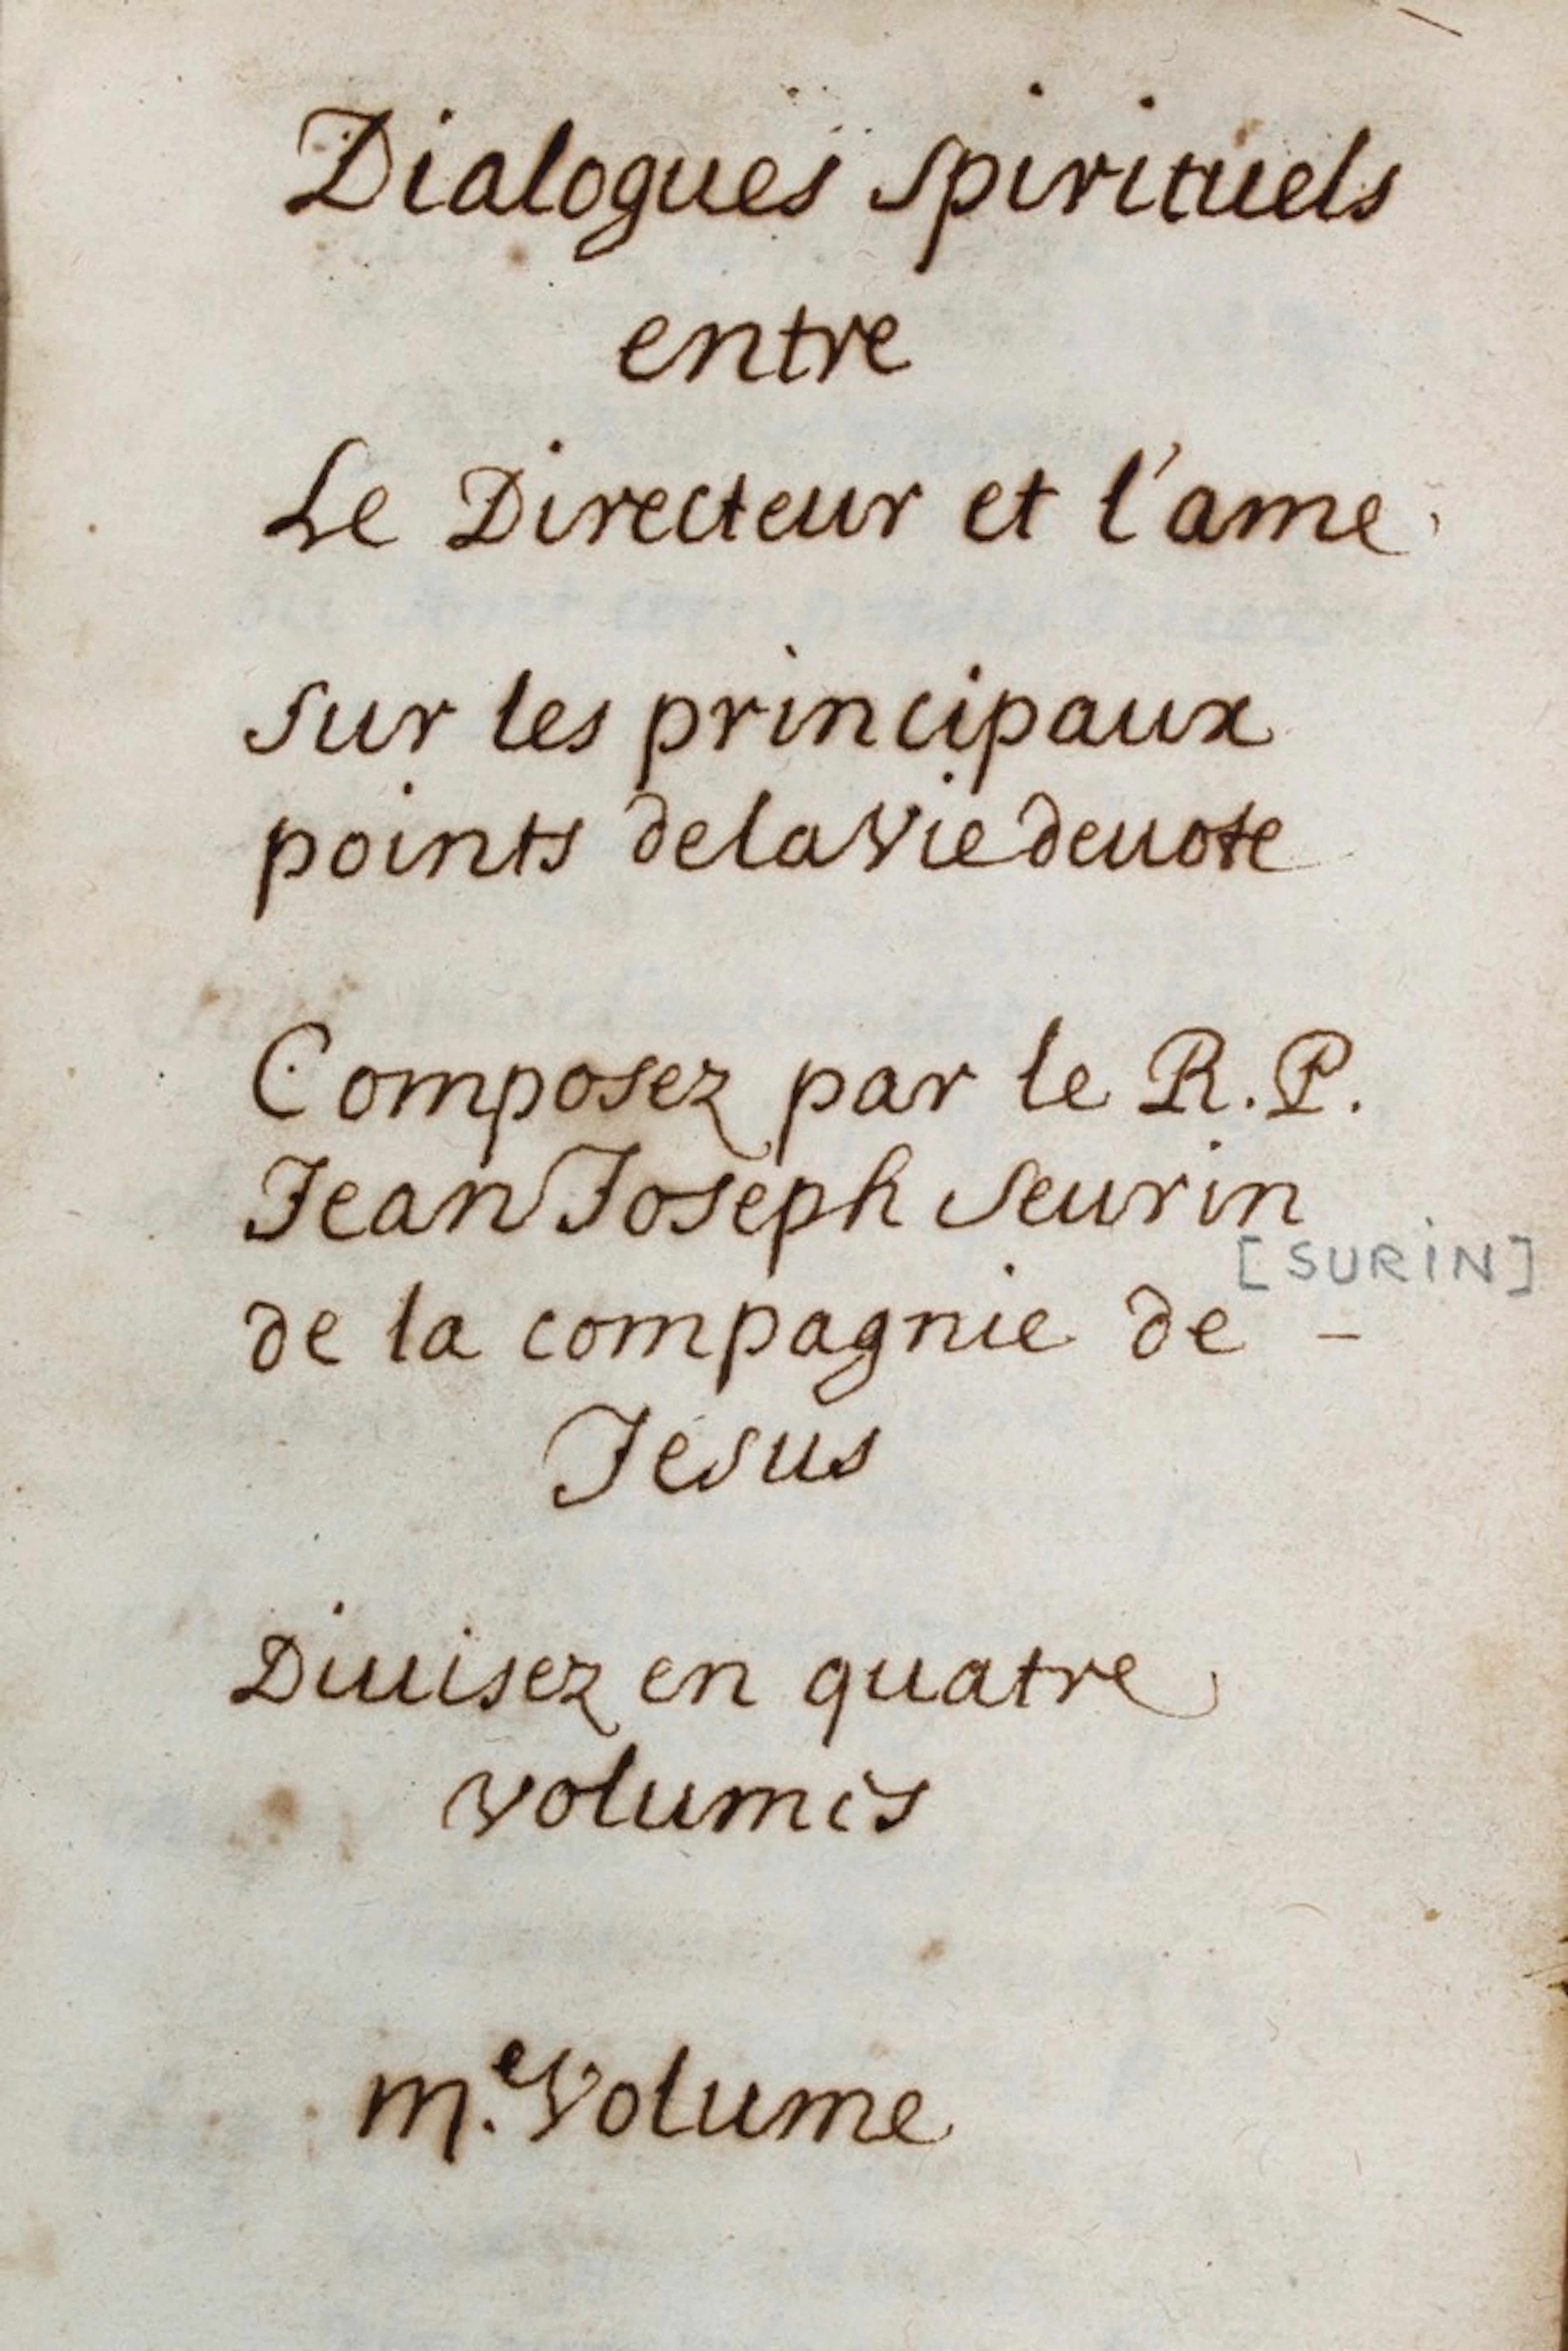 Dialogues spirituels
entre
Le Directeur et l'ame
sur les principaux
points de la vie deuote
Composez par le R. P.
Jean Joseph Seurin
[SURIN]
de la compagnie de –
Jesus
Diuisez en quatre
volumes
III.e Volume